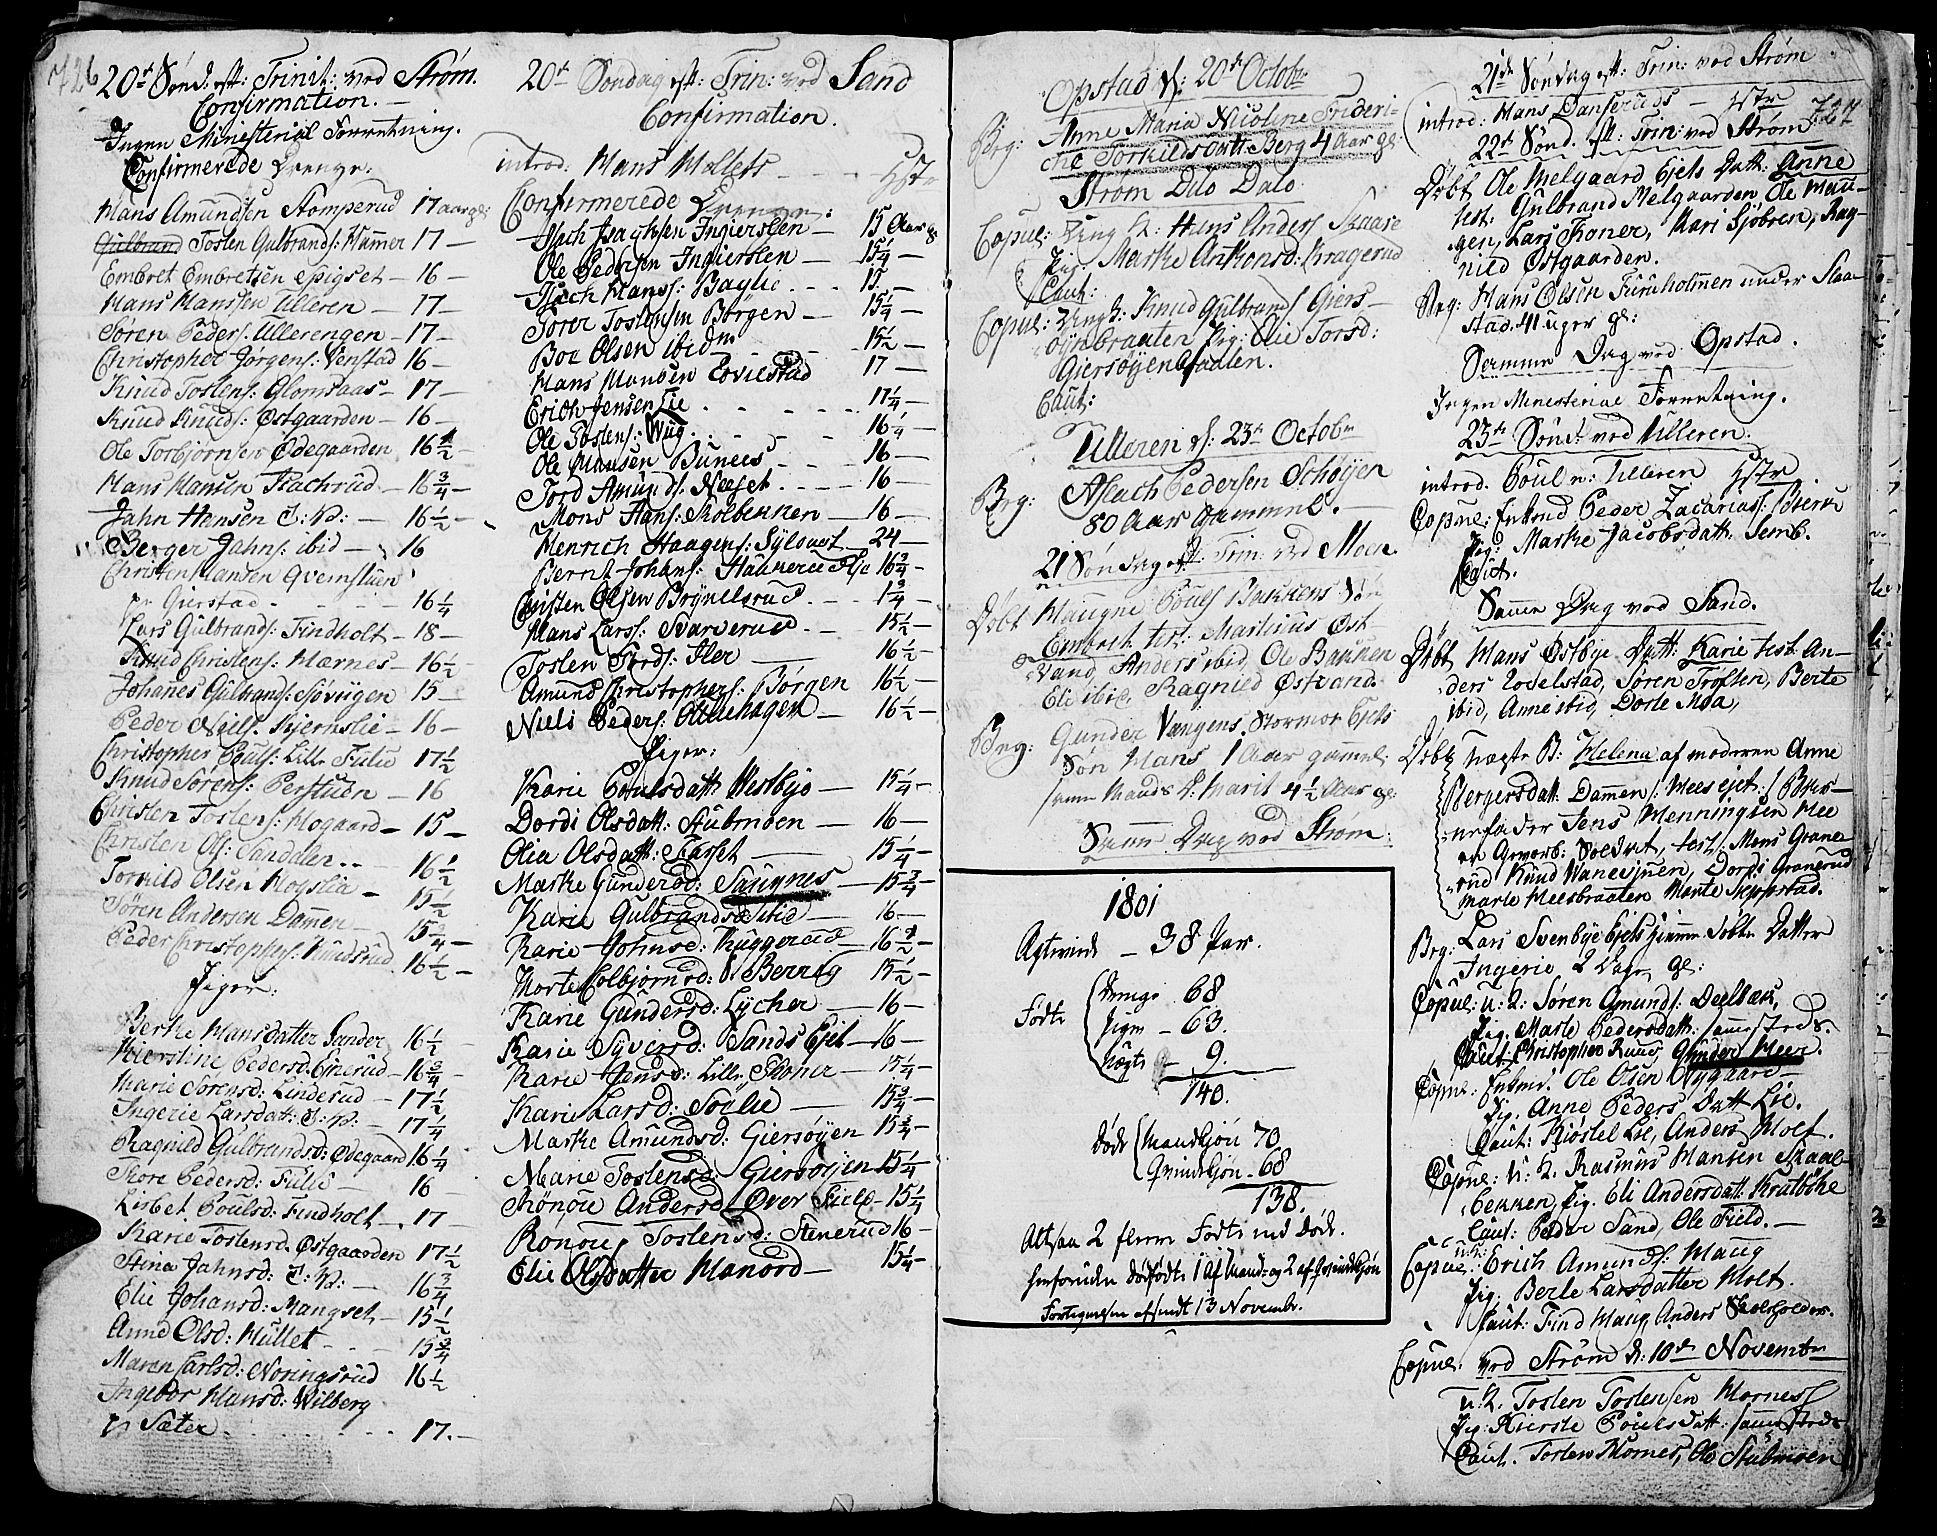 726
20de Sønd: eft: Trinit: ved Strøm.
Confirmation. —
Ingen Ministerial Forretning.
Confirmerede Drenge.
Hans Amundsen Stomperud 17 aar gl:
Gulbrand Tosten Gulbrands: Hammer 17 —
Embret Embretsen Opigset — 16 —
Hans Hanssen Ulleren — 17 —
Søren Peders: Ullerengen — 17 —
Christopher Jørgens: Venstad 16 —
Knud Tostens: Glomsaas — 17 —
Knud Knuds: Østgaarden — 16 —
Ole Torbjørnsen Ødegaarden 16 1/2 —
Hans Hansen Rachrud — 16 3/4 —
Jahn Hansen S: W: — 16 1/2 —
Berger Jahns: ibid — 16
Christen Hansen Qvernstuen
pr Gierstad - - - 16 1/4
Lars Gulbrands: Findholt — 18 —
Knud Christens: Hærnes — 16 1/2 —
Johanes Gulbrands: Søviigen 15 —
Peder Niels. Kjernslie — 16 —
Christopher Pouls: Lille Fulu 17 1/2
Knud Sørens: Perstuen — 16
Christen Tostens: Mogaard — 15 —
Christen Ols: Sandalen - - 16 1/2
Torkild Olsen Kogslia - 15 1/2
Søren Andersen Damen — 15 3/4 —
Peder Christophers: Knudsrud 16 1/2 —
Piger:
Berthe Hansdatter Sander 16 1/2 —
Kierstine Pedersd: Enerud — 16 3/4 —
Marie Sørensd: Linderud — 17 1/2
Ingerie Larsdatt: S: W: — 17 1/4
Ragnild Gulbrandsd: Ødegaard 16 1/4
Thore Pedersd: Fulu — 16 —
Lisbet Poulsd: Findholt — 17 —
Karie Tostensd. Østgaarden 17 1/2
Stina Jahnsd: S: W: — 16 3/4
Elie Johansd: Mangset — 15 1/2
Anne Olsd: Mullet - - 15 3/4
Maren Carlsd: Noringsrud 16 1/2
Ingebor Hansd: Wilberg
pr Sæter - - - 17. —
20de Søndag eft: Trin: ved Sand
Confirmation.
introd. Hans Mollets - - - Hstr
Confirmerede Drenge:
Isach Isachsen Ingierslen — 15 Aar gl
Ole Pedersen Ingierslen — 15 1/4 —
Isach Hans: Baglie - - - 15 —
Torer Tostensen Børgen — 15 1/4 —
Boe Olsen ibidm - - - 15 1/2 —
Hans Hansen Lovilstad 17 —
Erich Jensen Lie - - - 17 1/4 —
Ole Tostens: Wiig - - - 16 1/4 —
Ole Hansen Bunees - - - 16 —
Tord Amunds: Næset - - - 16 —
Mons Hans: Molbekken — 16 —
Henrich Haagens: Sylqvet — 24 —
Bernt Johans: Haukerud Eje 16 3/4 —
Christen Olsen Brynelsrud - - 1 3/4 —
Hans Lars: Svarverud - - 15 1/2 —
Tosten Tords: Iler — 16 1/2 —
Amund Christophers: Børgen 16 1/2 —
Niels Peders: Ollenhagen — 16 1/2 —
Piger:
Karie Poulsdatt: Westbye — 15 1/4 —
Dordi Olsdatt: Stubmoen — 16 —
Olia Olsdatt: Farset — 15 1/4 —
Marthe Gundersd: Saugnes — 15 3/4 —
Karie Gulbrandsd: ibid — 16 —
Karie Johnsd: Kuggerud — 16 1/2 —
Marte Colbjørnsd: V: Berrig 15 1/2 —
Karie Gundersd: Lycher — 16 —
Karie Syversd: Sands Ejet — 16 —
Karie Hansd: Lille Skoner — 15 1/4 —
Karie Larsd: Soelie — 15 3/4 —
Marthe Amundsd: Giersøyen 15 3/4 —
Marie Tostensd: Giersøyen 15 1/4 —
Rønoue Andersd. Over Field — 15 1/4
Rønou Tostensd: Stenerud 16 —
Elie Olsdatter Manord — 15 1/4 —
Opstad d: 20de Octobr
Beg: Anne Maria Nicoline Frideri-
che Torkildsdatt: Berg 4 Aar gl:
Strøm Dito Dato.
Copul: Ung K: Hans Anders: Skaare
Pig. Marthe Anthonsd: Kragerud
Caut:
Copul: Ung k: Knud Gulbrands: Giers-
øynbraaten Pig: Olie Torsd:
Giersøyen Gaalen.
Caut:
Ulleren d: 23de Octobr
Beg: Aslach Pedersen Schøyen
80 Aar gammel. —
21 Søndag eft: Trin: ved Moen
Døbt Haugne Pouls Bakkens Søn
Embret. test: Martinus Øst-
vand, Anders ibid, Ole Bakken
Eli ibid, Ragnild Østvand.
Beg: Gunder Vangens, Stormoe Ejets
Søn Hans 1 Aar gammel:
samme Mands D: Marit 4 1/2 Aar gl:
Samme Dag ved Strøm:
1801
Ægteviede — 38 Par.
Fødte
Drenge 68
Piger — 63.
Uægte — 9.
140.
Døde
Mandkjøn 70
Qvindekjøn - 68
138.
Altsaa 2 flere Fødte end Døde.
Herforuden dødfødte 1 af Mand: og 2 af Qvindekjøn
Fortegnelsen afsendt 13 Novembr.
21de Søndag eft: Trin: ved Strøm
introd: Hans Danseruds — Hstr
727
22de Sønd. eft: Trin: ved Strøm
Døbt Ole Melgaard Ejets Datt: Anne
test: Gulbrand Melgaarden, Ole Hau-
gen, Lars Skoner, Kari Sjøbren, Rag-
nild Østgaarden.
Beg: Hans Olsen Furuholmen under Slaa-
stad. 41 uger gl:
Samme Dag ved Opstad.
Ingen Ministerial Forretning.
23de Sønd: ved Ulleren.
introd. Poul n: Ulleren Hstr
Copul: Enkmd Peder Zacariass: Biere
Pig: Marthe Jacobsdatt: Semb.
Caut.
Samme Dag ved Sand.
Døbt Hans Østbye Datt: Karie test: An-
ders Lovelstad, Søren Trolsen, Berte
ibid, Anne ibid, Dorte Moa,
Døbt Uægte B: Helena af moderen Anne
Bergersdatt: Damen /: Mees ejet :/ Bar-
nefader Jens Henningsen Mee
en Gevorb: Soldat, test: Mons Grane-
rud Knud Wanesjuen, Dordi Granerud
Marte Meesbraaten Marte Seppstad.
Beg: Lars Svenbye Ejets hjemme døbte Datter
Ingerie 2 Dage gl:
Copul: U: K: Søren Amunds: Deelbæk,
Pig. Marte Pedersdatt: sammesteds.
Caut: Christopher Ruus, Gunder Meer.
Copul: Enkmd. Ole Olsen Nygaard —
Pig. Anne Peders Datt Lie.
Caut: Kiostel Lie, Anders Holt.
Copul: U: K: Rasmus Hansen Skaal-
bekken, Pig. Eli Andersdatt: Krabøke
Caut: Peder Sand, Ole Field. —
Copul: U:K: Erich Amunds: Haug
Pig: Berte Larsdatter Holt.
Caut: Find Haug, Anders Skarholder.
Copul: ved Strøm d: 10de Novembr
U: K. Tosten Tostensen Hornes
Pig: Kierste Poulsdatt: sammesteds
Caut. Tosten Hornes, Ole Stubmoen